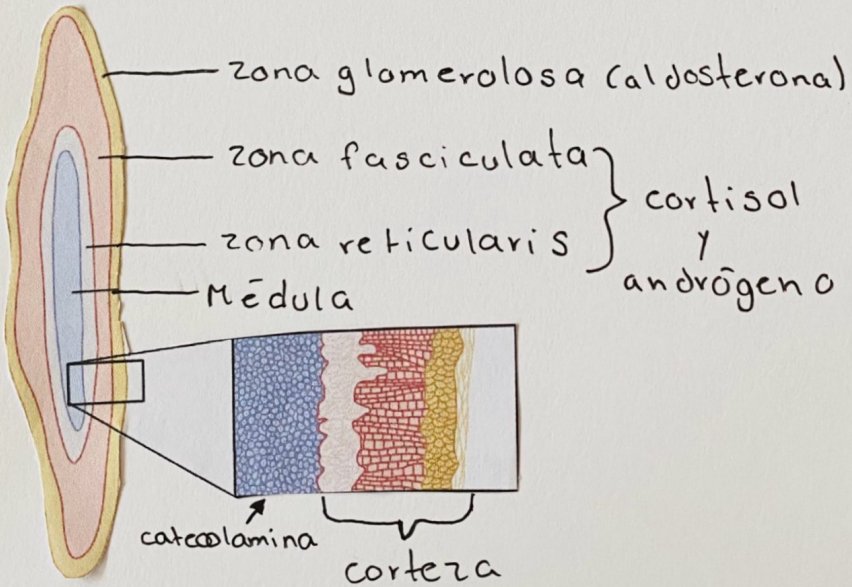 zona glomerolosa (aldosterona)
zona fasciculata
zona reticularis
cortisol
y
andrógeno
Médula
catecolamina
corteza